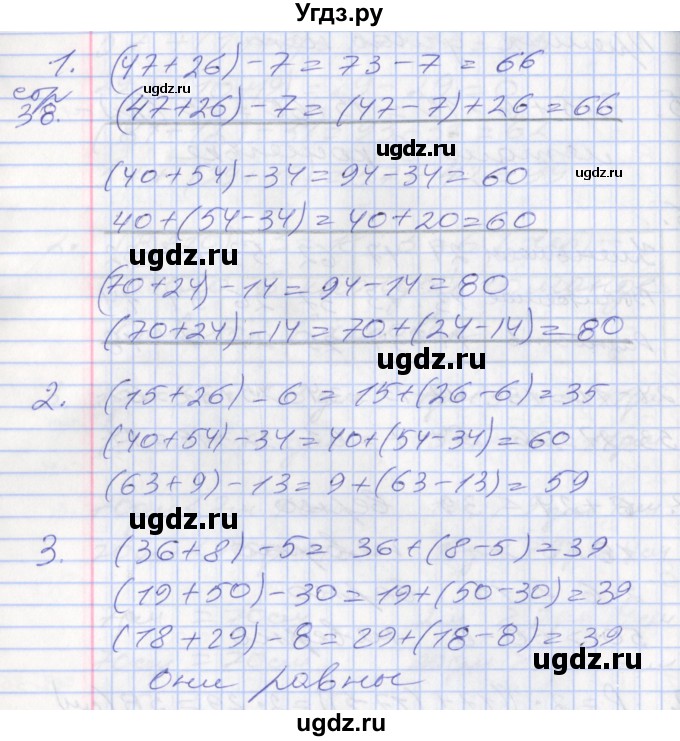 Угдз.ру
1. (47+26)-7=73-7=66
стр
38. (47+26)-7=(47-7)+26=66
ugdz.ru
ugdz.ru
ugdz.ru
(40+54)-34=94-34=60
ugdz.ru
40+(54-34)=40+20=60
ugdz.ru
(70+24)-14=94-14=80
(70+24)-14=70+(24-14)=80
ugdz.ru
2. (15+26)-6=15+(26-6)=35
(40+54)-34=40+(54-34)=60
(63+9)-13=9+(63-13)=59
ugdz.ru
3. (36+8)-5=36+(8-5)=39
(19+50)-30=19+(50-30)=39
(18+29)-8=29+(18-8)=39
ugdz.ru
Они равны
ugdz.ru